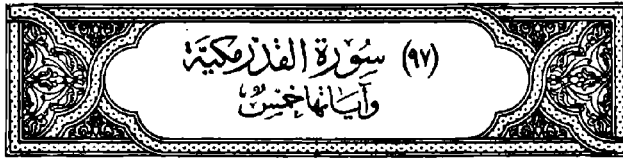 (٩٧) سُورَةُ الْقَدْرِ مَكِّيَّة
وَآيَاتُهَا خَمْسٌ